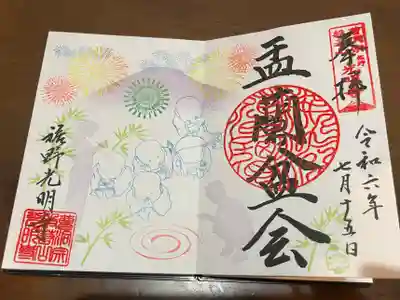 奉拝
令和六年
七月十五日
盂蘭盆会
裾野光明寺